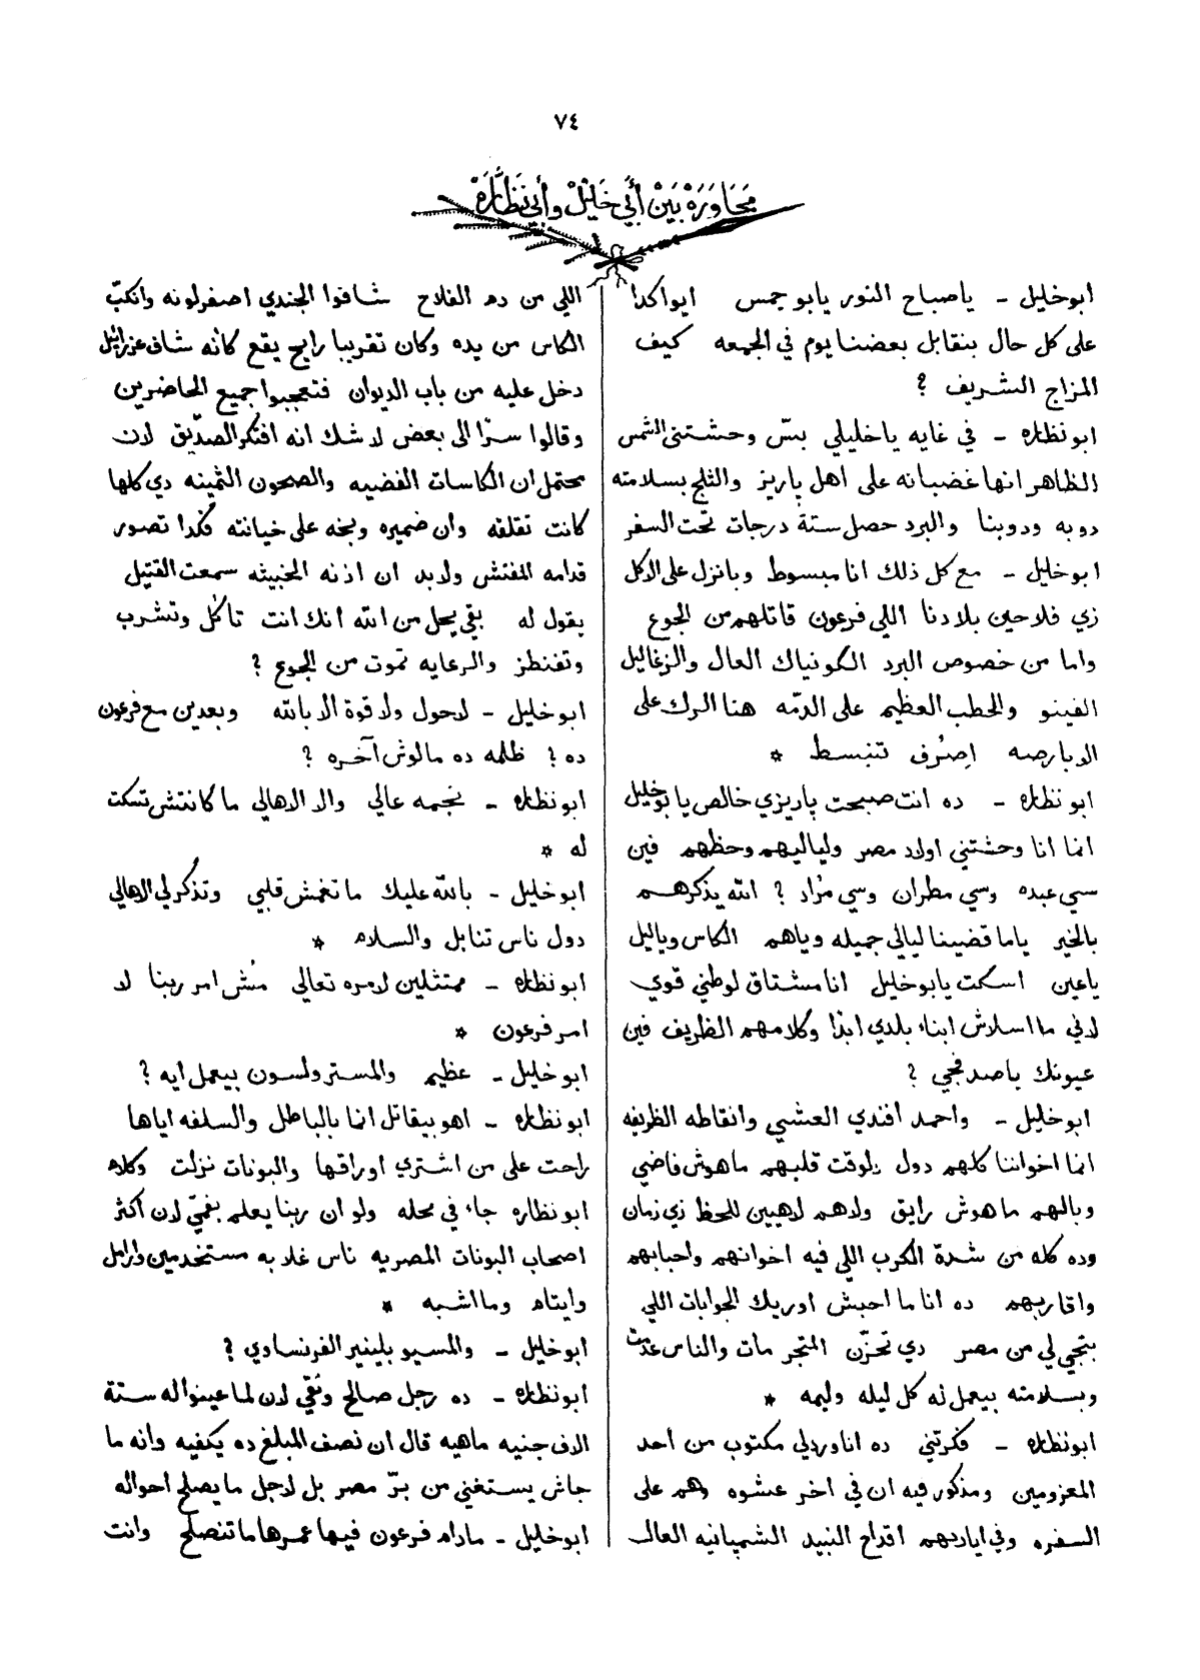 ٧٤
مَحَاوَرَة بَيْنَ أَبِي خَلِيْل وأَبِي نَظَّارَة
ابوخليل - ياصباح النور يابو جمس ايوا كدا
على كل حال بنتقابل بعضنا يوم في الجمعه كيف
المزاج الشريف ؟
ابونظاره - في غايه ياخليلي بسّ وحشتني الشمس
الظاهر انها غضبانه على اهل پاريز والثلج بسلامته
دوبه ودوبنا والبرد حصل ستة درجات تحت السفر
ابوخليل - مع كل ذلك انا مبسوط وبانزل على الاكل
زي فلاحين بلادنا اللي فرعون قاتلهم من الجوع
واما من خصوص البرد الكونياك العال والزغاليل
الفينو والحطب العظيم على الدمّه هنا البرك على
الدبارصه اصُرف تنبسط *
ابو نظاره - ده انت صبحت پاريزي خالص يا بوخليل
انما انا وحشتني اولاد مصر ولياليهم وحظهم فين
سي عبده وسي مطران وسي مُراد ؟ الله يذكرهم
بالخير ياما قضينا ليالي جميله وياهم الكاس وياليل
ياعين اسكت يابوخليل انا مشتاق لوطني قوي
لاني ما اسلاش ابناء بلدي ابدًا وكلامهم الظريف فين
عيونك ياصدفجي ؟
ابوخليل - واحمد افندي العشي وانقاطه الظريفه
انما اخواننا كلهم دول دلوقت قلبهم ماهوش فاضي
وبالهم ماهوش رايق ولاهم لاهيين للحظ زي زمان
وده كله من شدة الكرب اللي فيه اخوانهم واحبابهم
واقاربهم ده انا ما احبش اوريك الجوابات اللي
بتجي لي من مصر دي تحزّن المتجر مات والناس عدمت
وبسلامته بيعمل له كل ليله وليمه *
ابونظاره - فكرتني ده انا وردلي مكتوب من احد
المعزومين ومذكور فيه ان في اخر عشوه وهم على
السفره وفي اياديهم اقداح النبيد الشمپانيه العال
اللي من دم الفلاح شافوا الجندي اصفر لونه وانكبّ
الكاس من يده وكان تقريبا رايح يقع كأنه شاف عزرائيل
دخل عليه من باب الديوان فتعجبوا جميع الحاضرين
وقالوا سرًا الى بعض لا شك انه افتكر الصدّيق لان
محتمل ان الكاسات الفضيه والصحون الثمينه دي كلها
كانت تقلقه وان ضميره وبخه على خيانته فكدا تصور
قدامه المفتش ولابد ان اذنه الخبيثه سمعت القتيل
يقول له بقي يحل من الله انك انت تاكل وتشرب
وتفنطز والرعايه تموت من الجوع ؟
ابوخليل - لاحول ولا قوة الا بالله وبعدين مع فرعون
ده ؟ ظلمه ده مالوش آخره ؟
ابونظاره - نجمه عالي والا الاهالي ما كانتش تسكت
له *
ابوخليل - بالله عليك ماتغمش قلبي وتذكر لي الاهالي
دول ناس تنابل والسلام *
ابونظاره - ممتثلين لامره تعالى مُش امر ربنا لا
امر فرعون *
ابوخليل - عظيم والمستر ولسون بيعمل ايه ؟
ابونظاره - اهو بيقاتل انما بالباطل والسلفه اياها
راحت على من اشتري اوراقها والبونات نزلت وكلام
ابونظاره جاء في محله ولو ان ربنا يعلم بغمّي لان اكثر
اصحاب البونات المصريه ناس غلابه مستخدمين وارامل
وايتام وما اشبه *
ابوخليل - والمسيو بلينير الفرنساوي ؟
ابونظاره - ده رجل صالح وتُقي لان لما عينوا له ستة
الاف جنيه ماهيه قال ان نصف المبلغ ده يكفيه وانه ما
جاش يستغني من برّ مصر بل لاجل ما يصلح احواله
ابوخليل - مادام فرعون فيها عمرها ماتنصلح وانت